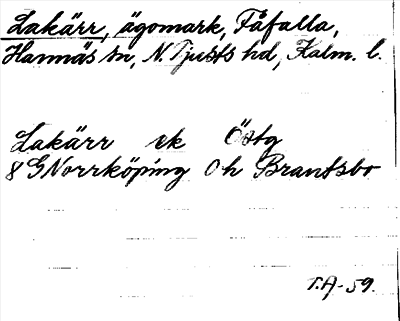 Lakärr, ägomark, Fåfalla,
Hannäs sn, N. Tjusts hd, Kalm. l.
Lakärr ek Östg
8 G Norrköping 0 h Brantsbo
T.A-59.